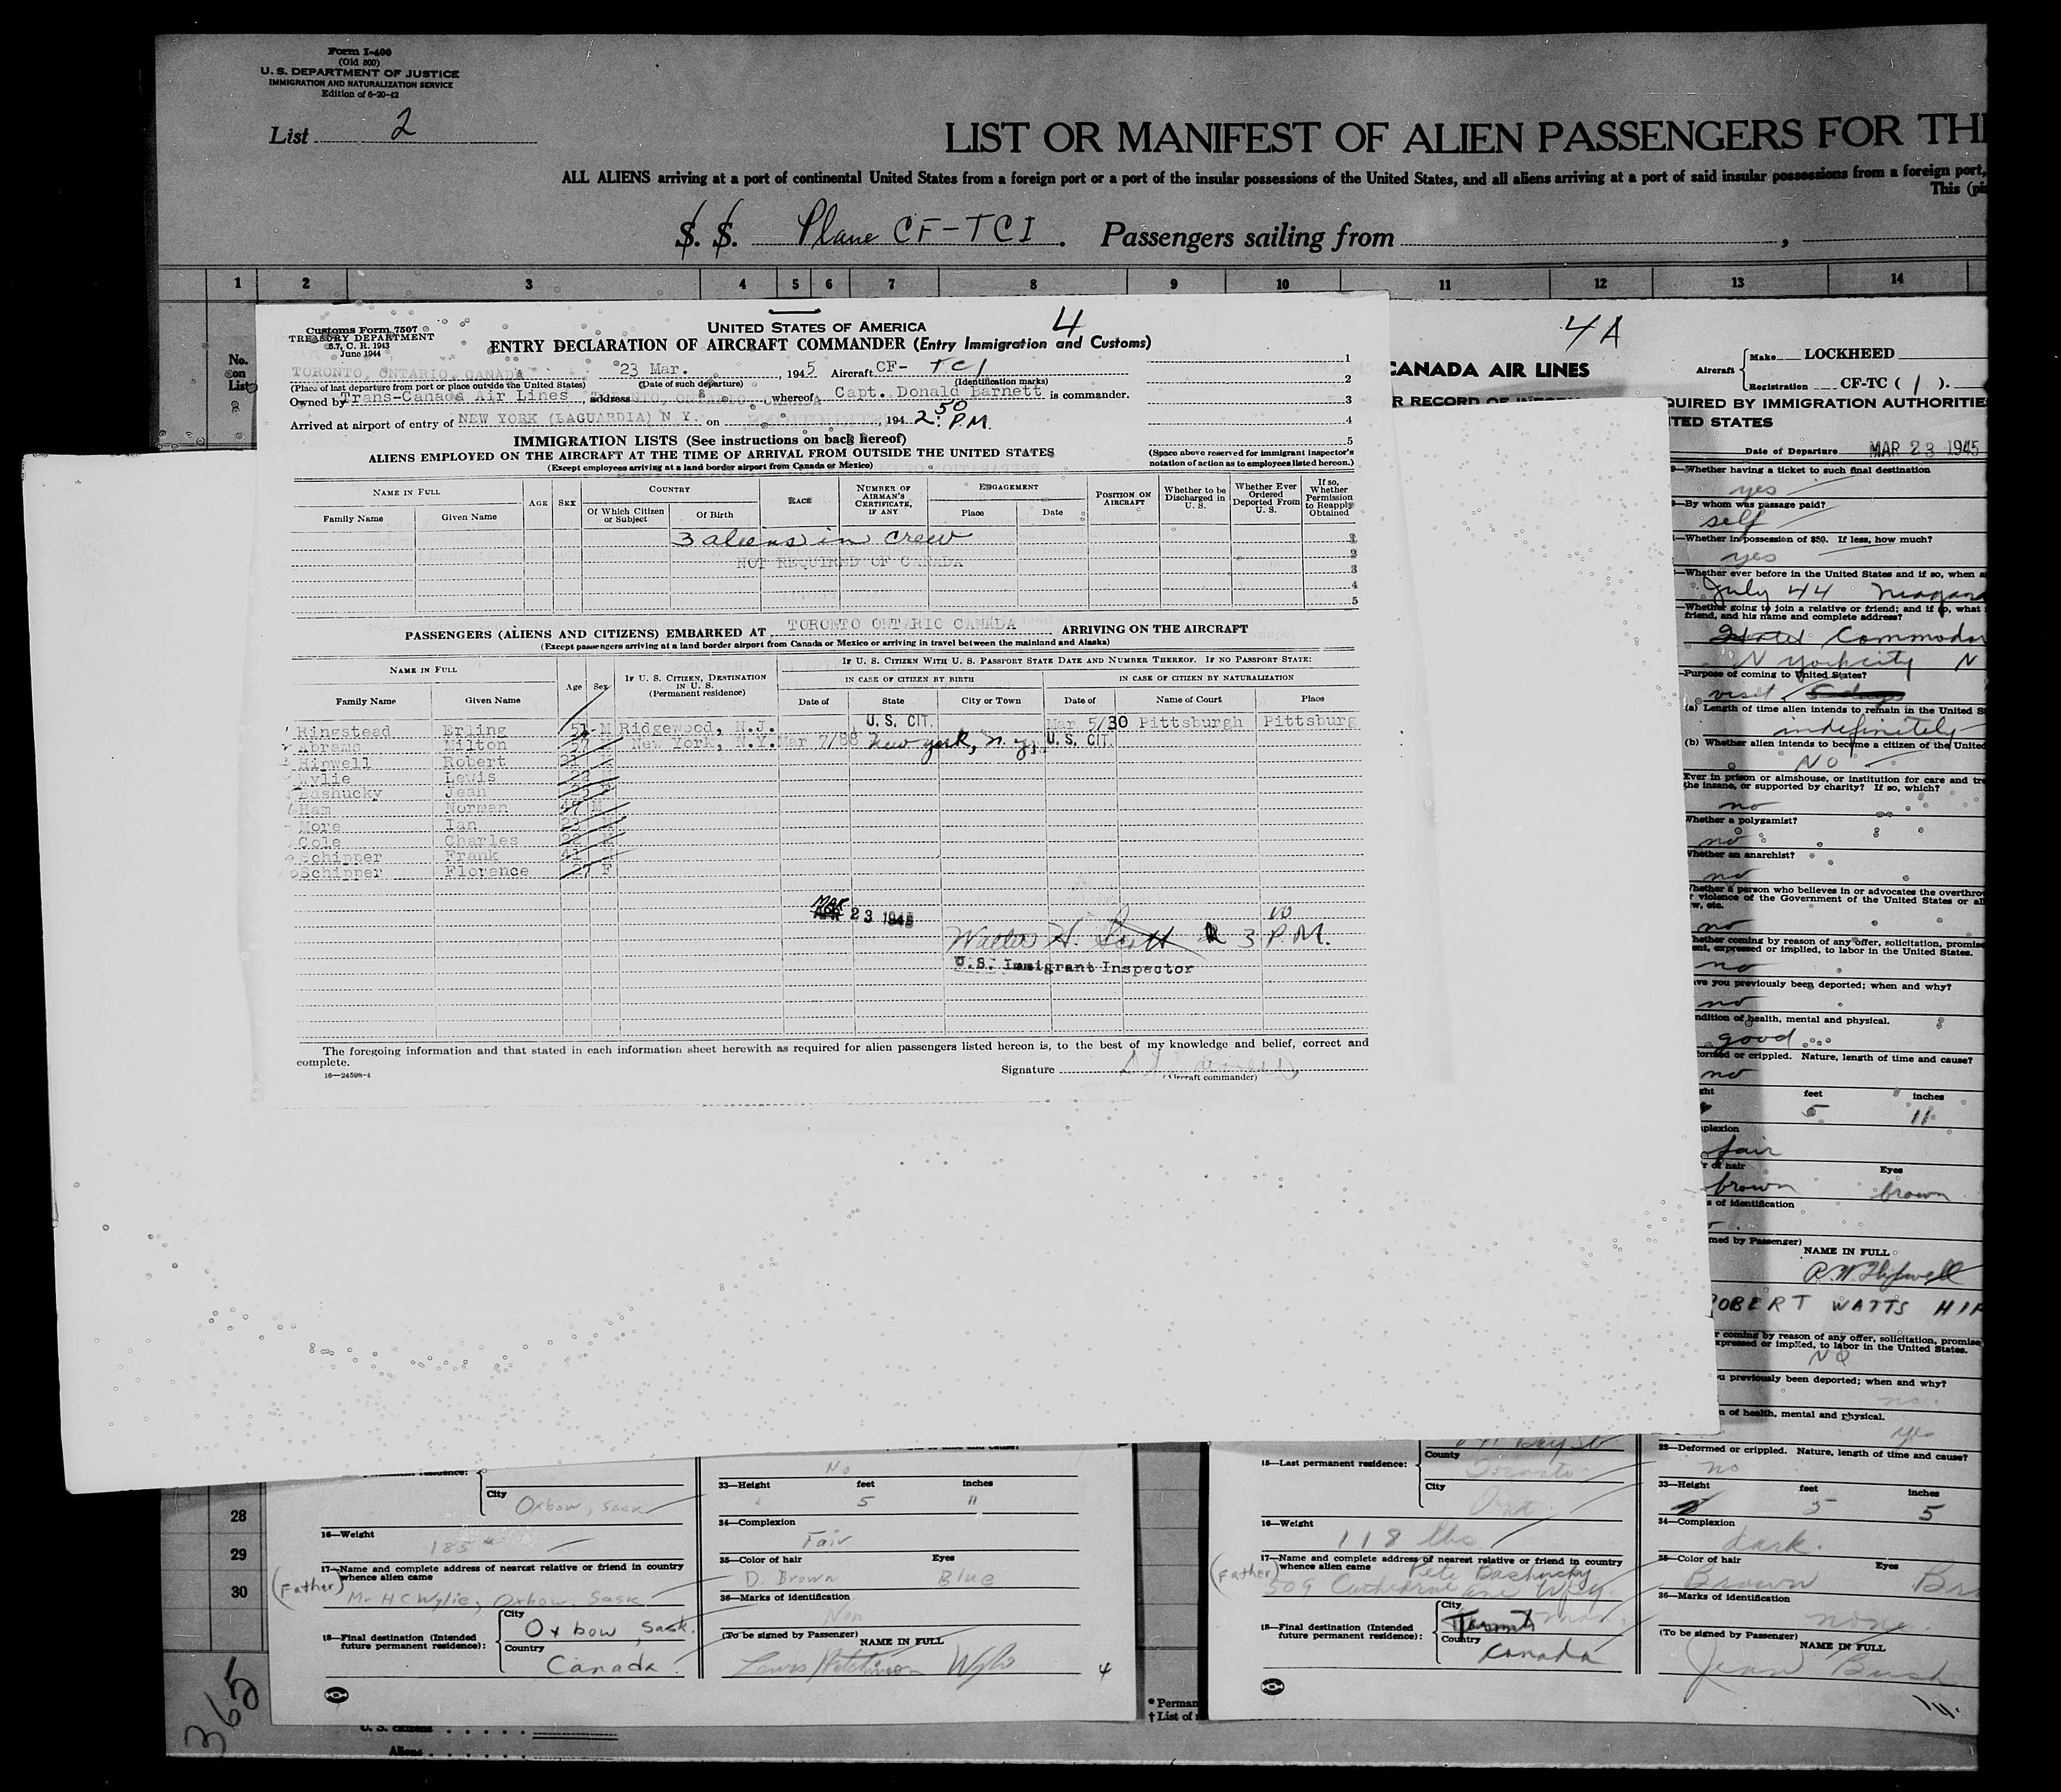 Form I-400
(Old 500)
U. S. DEPARTMENT OF JUSTICE
IMMIGRATION AND NATURALIZATION SERVICE
Edition of 6-20-42
List 2
LIST OR MANIFEST OF ALIEN PASSENGERS FOR TH
ALL ALIENS arriving at a port of continental United States from a foreign port or a port of the insular possessions of the United States, and all aliens arriving at a port of said insular possessions from a foreign port,
This (pi
S. S. Plane CF-TCI . Passengers sailing from ,
1 2 3 4 5 6 7 8 9 10 11 12 13 14
No. on List
Customs Form 7507
TREASURY DEPARTMENT
6.7, C. R. 1943
June 1944
UNITED STATES OF AMERICA
4
ENTRY DECLARATION OF AIRCRAFT COMMANDER (Entry Immigration and Customs)
TORONTO, ONTARIO, CANADA 23 Mar. , 1945 Aircraft CF- TCI
(Place of last departure from port or place outside the United States) (Date of such departure) (Identification marks)
Owned by Trans-Canada Air Lines , address TORONTO, ONTARIO, CANADA whereof Capt. Donald Barnett is commander.
Arrived at airport of entry of NEW YORK (LAGUARDIA) N.Y. on , 194 2:50 P.M.
1
2
3
4
5
IMMIGRATION LISTS (See instructions on back hereof)
ALIENS EMPLOYED ON THE AIRCRAFT AT THE TIME OF ARRIVAL FROM OUTSIDE THE UNITED STATES
(Except employees arriving at a land border airport from Canada or Mexico)
(Space above reserved for immigrant inspector's notation of action as to employees listed hereon.)
NAME IN FULL AGE SEX COUNTRY RACE NUMBER OF AIRMAN'S CERTIFICATE, IF ANY ENGAGEMENT POSITION ON AIRCRAFT Whether to be Discharged in U. S. Whether Ever Ordered Deported From U. S. If so, Whether Permission to Reapply Obtained
Family Name Given Name Of Which Citizen or Subject Of Birth Place Date
3 aliens in crew 1
NOT REQUIRED OF CANADA 2
3
4
5
PASSENGERS (ALIENS AND CITIZENS) EMBARKED AT TORONTO ONTARIO CANADA ARRIVING ON THE AIRCRAFT
(Except passengers arriving at a land border airport from Canada or Mexico or arriving in travel between the mainland and Alaska)
NAME IN FULL Age Sex IF U. S. CITIZEN, DESTINATION IN U. S. (Permanent residence) IF U. S. CITIZEN WITH U. S. PASSPORT STATE DATE AND NUMBER THEREOF. IF NO PASSPORT STATE:
IN CASE OF CITIZEN BY BIRTH IN CASE OF CITIZEN BY NATURALIZATION
Family Name Given Name Date of State City or Town Date of Name of Court Place
1 Ringstead Erling 51 M Ridgewood, N.J. U.S. CIT. Mar 5/30 Pittsburgh Pittsburg
Abrams Milton 57 M New York, N.Y. Mar 7/88 New York, N.Y. U.S. CIT.
Hipwell Robert 21 M
Wylie Lewis 22 M
Bashucky Jean F
6 Ham Norman 47 M
More Ian 23 M
Cole Charles 22 M
Schipper Frank 41 M
Schipper Florence 27 F
MAR 23 1945
Walter H. Scott 3 00 P.M.
U.S. Immigrant Inspector
The foregoing information and that stated in each information sheet herewith as required for alien passengers listed hereon is, to the best of my knowledge and belief, correct and complete.
16-24598-4
Signature
(Aircraft commander)
4A
CANADA AIR LINES
Aircraft Make LOCKHEED
Registration CF-TC ( 1 ).
QUIRED BY IMMIGRATION AUTHORITIE
TED STATES
Date of Departure MAR 23 1945
Whether having a ticket to such final destination
yes
By whom was passage paid?
self
Whether in possession of $50. If less, how much?
yes
Whether ever before in the United States and if so, when a
July 44
Whether going to join a relative or friend; and if so, what
friend, and his name and complete address?
Hotel Commodor
N York city N
Purpose of coming to United States?
visit 5 days
(a) Length of time alien intends to remain in the United S
indefinitely
(b) Whether alien intends to become a citizen of the United
NO
Ever in prison or almshouse, or institution for care and tre
the insane, or supported by charity? If so, which?
no
Whether a polygamist?
no
Whether an anarchist?
no
Whether a person who believes in or advocates the overthro
violence of the Government of the United States or al
w, etc.
no
hether coming by reason of any offer, solicitation, promise
ent, expressed or implied, to labor in the United States.
no
ave you previously been deported; when and why?
no
ndition of health, mental and physical.
good
formed or crippled. Nature, length of time and cause?
no
ght feet inches
5 11
mplexion
fair
r of hair Eyes
brown brown
s of identification
ned by Passenger)
NAME IN FULL
R.W. Hipwell
ROBERT WATTS HIP
r coming by reason of any offer, solicitation, promise
expressed or implied, to labor in the United States.
NO
u previously been deported; when and why?
no.
n of health, mental and physical.
yes
32—Deformed or crippled. Nature, length of time and cause?
no
33—Height feet inches
5 5
34—Complexion
dark.
35—Color of hair Eyes
Brown Br
36—Marks of identification
none.
(To be signed by Passenger) NAME IN FULL
Jean Bash
28
29
30
365
City Oxbow, Sask
16—Weight
185
17—Name and complete address of nearest relative or friend in country whence alien came
(Father) Mr H C Wylie, Oxbow, Sask
18—Final destination (Intended future permanent residence): City Oxbow, Sask.
Country Canada.
No
33—Height feet inches
5 11
34—Complexion
Fair
35—Color of hair Eyes
D. Brown Blue
36—Marks of identification
Non
(To be signed by Passenger) NAME IN FULL
Lewis Hutchinson Wylie
4
U. S. citizens
Aliens
* Perman
† List of
Bay St
15—Last permanent residence: County Toronto
City Ont.
16—Weight
118 lbs
17—Name and complete address of nearest relative or friend in country whence alien came
(Father) Pete Bashucky
509
18—Final destination (Intended future permanent residence): City Toronto
Country Canada